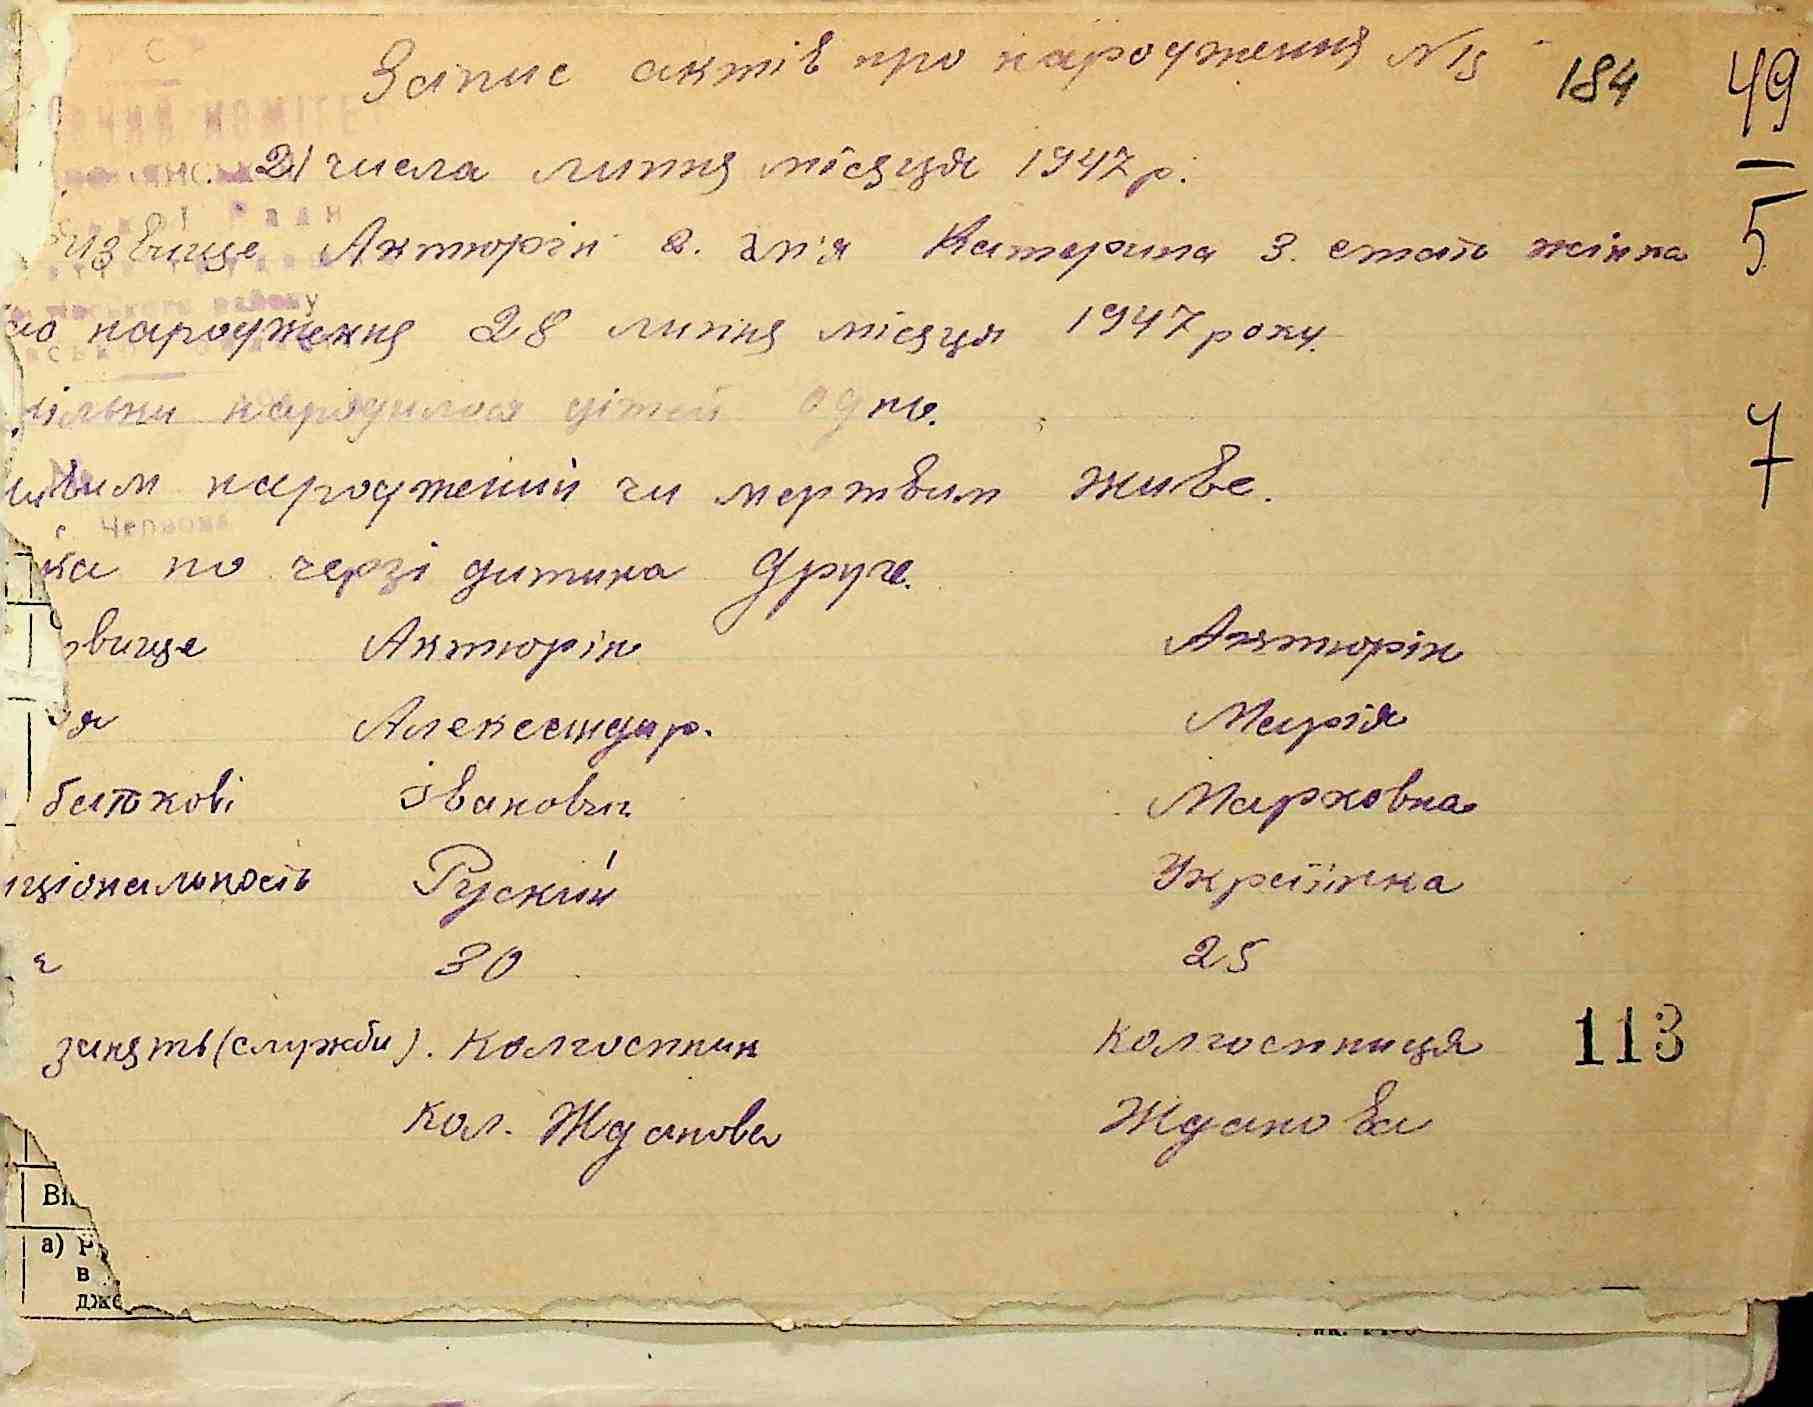 Запис актів про народження №
184
49
5
7
21 числа липня місяця 1947 р.
ізвище Актюрін 2. ім'я Катерина 3. стать жінка
народження 28 липня місяця 1947 року.
кільки народилося дітей одно.
живим народжений чи мертвим живе.
ка по черзі дитина друге.
звище Актюрін Актюрін
я Александр. Марія
батькові Іванович Марковна
ціональность Руский Украінка
30 25
занять (служби). Колгоспник колгоспниця
113
кол. Жданова Жданова
Ві
а) Р
в
дже